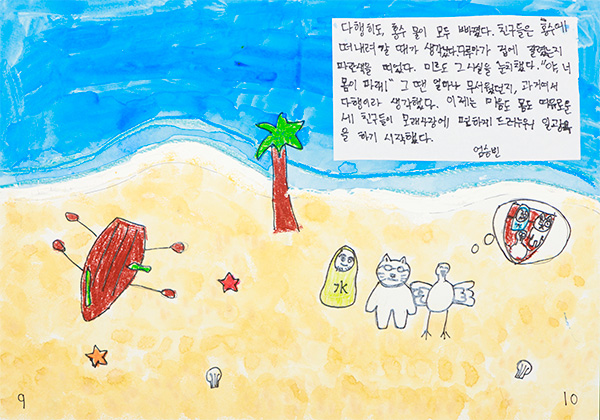 다행히도, 홍수 물이 모두 빠졌다. 친구들은 홍수에
떠내려 갈 때가 생각났다. 겁에 질렸는지
파란색을 띄었다. 미르도 그 사실을 눈치챘다. "야, 너
몸이 파래!" 그 땐 얼마나 무서웠던지, 과거여서
다행이라 생각했다. 이제는 마음도 몸도 따뜻해진
세 친구들이 모래사장에 편하게 드러누워 일광욕
을 하기 시작했다.
엄승빈
水
9
10